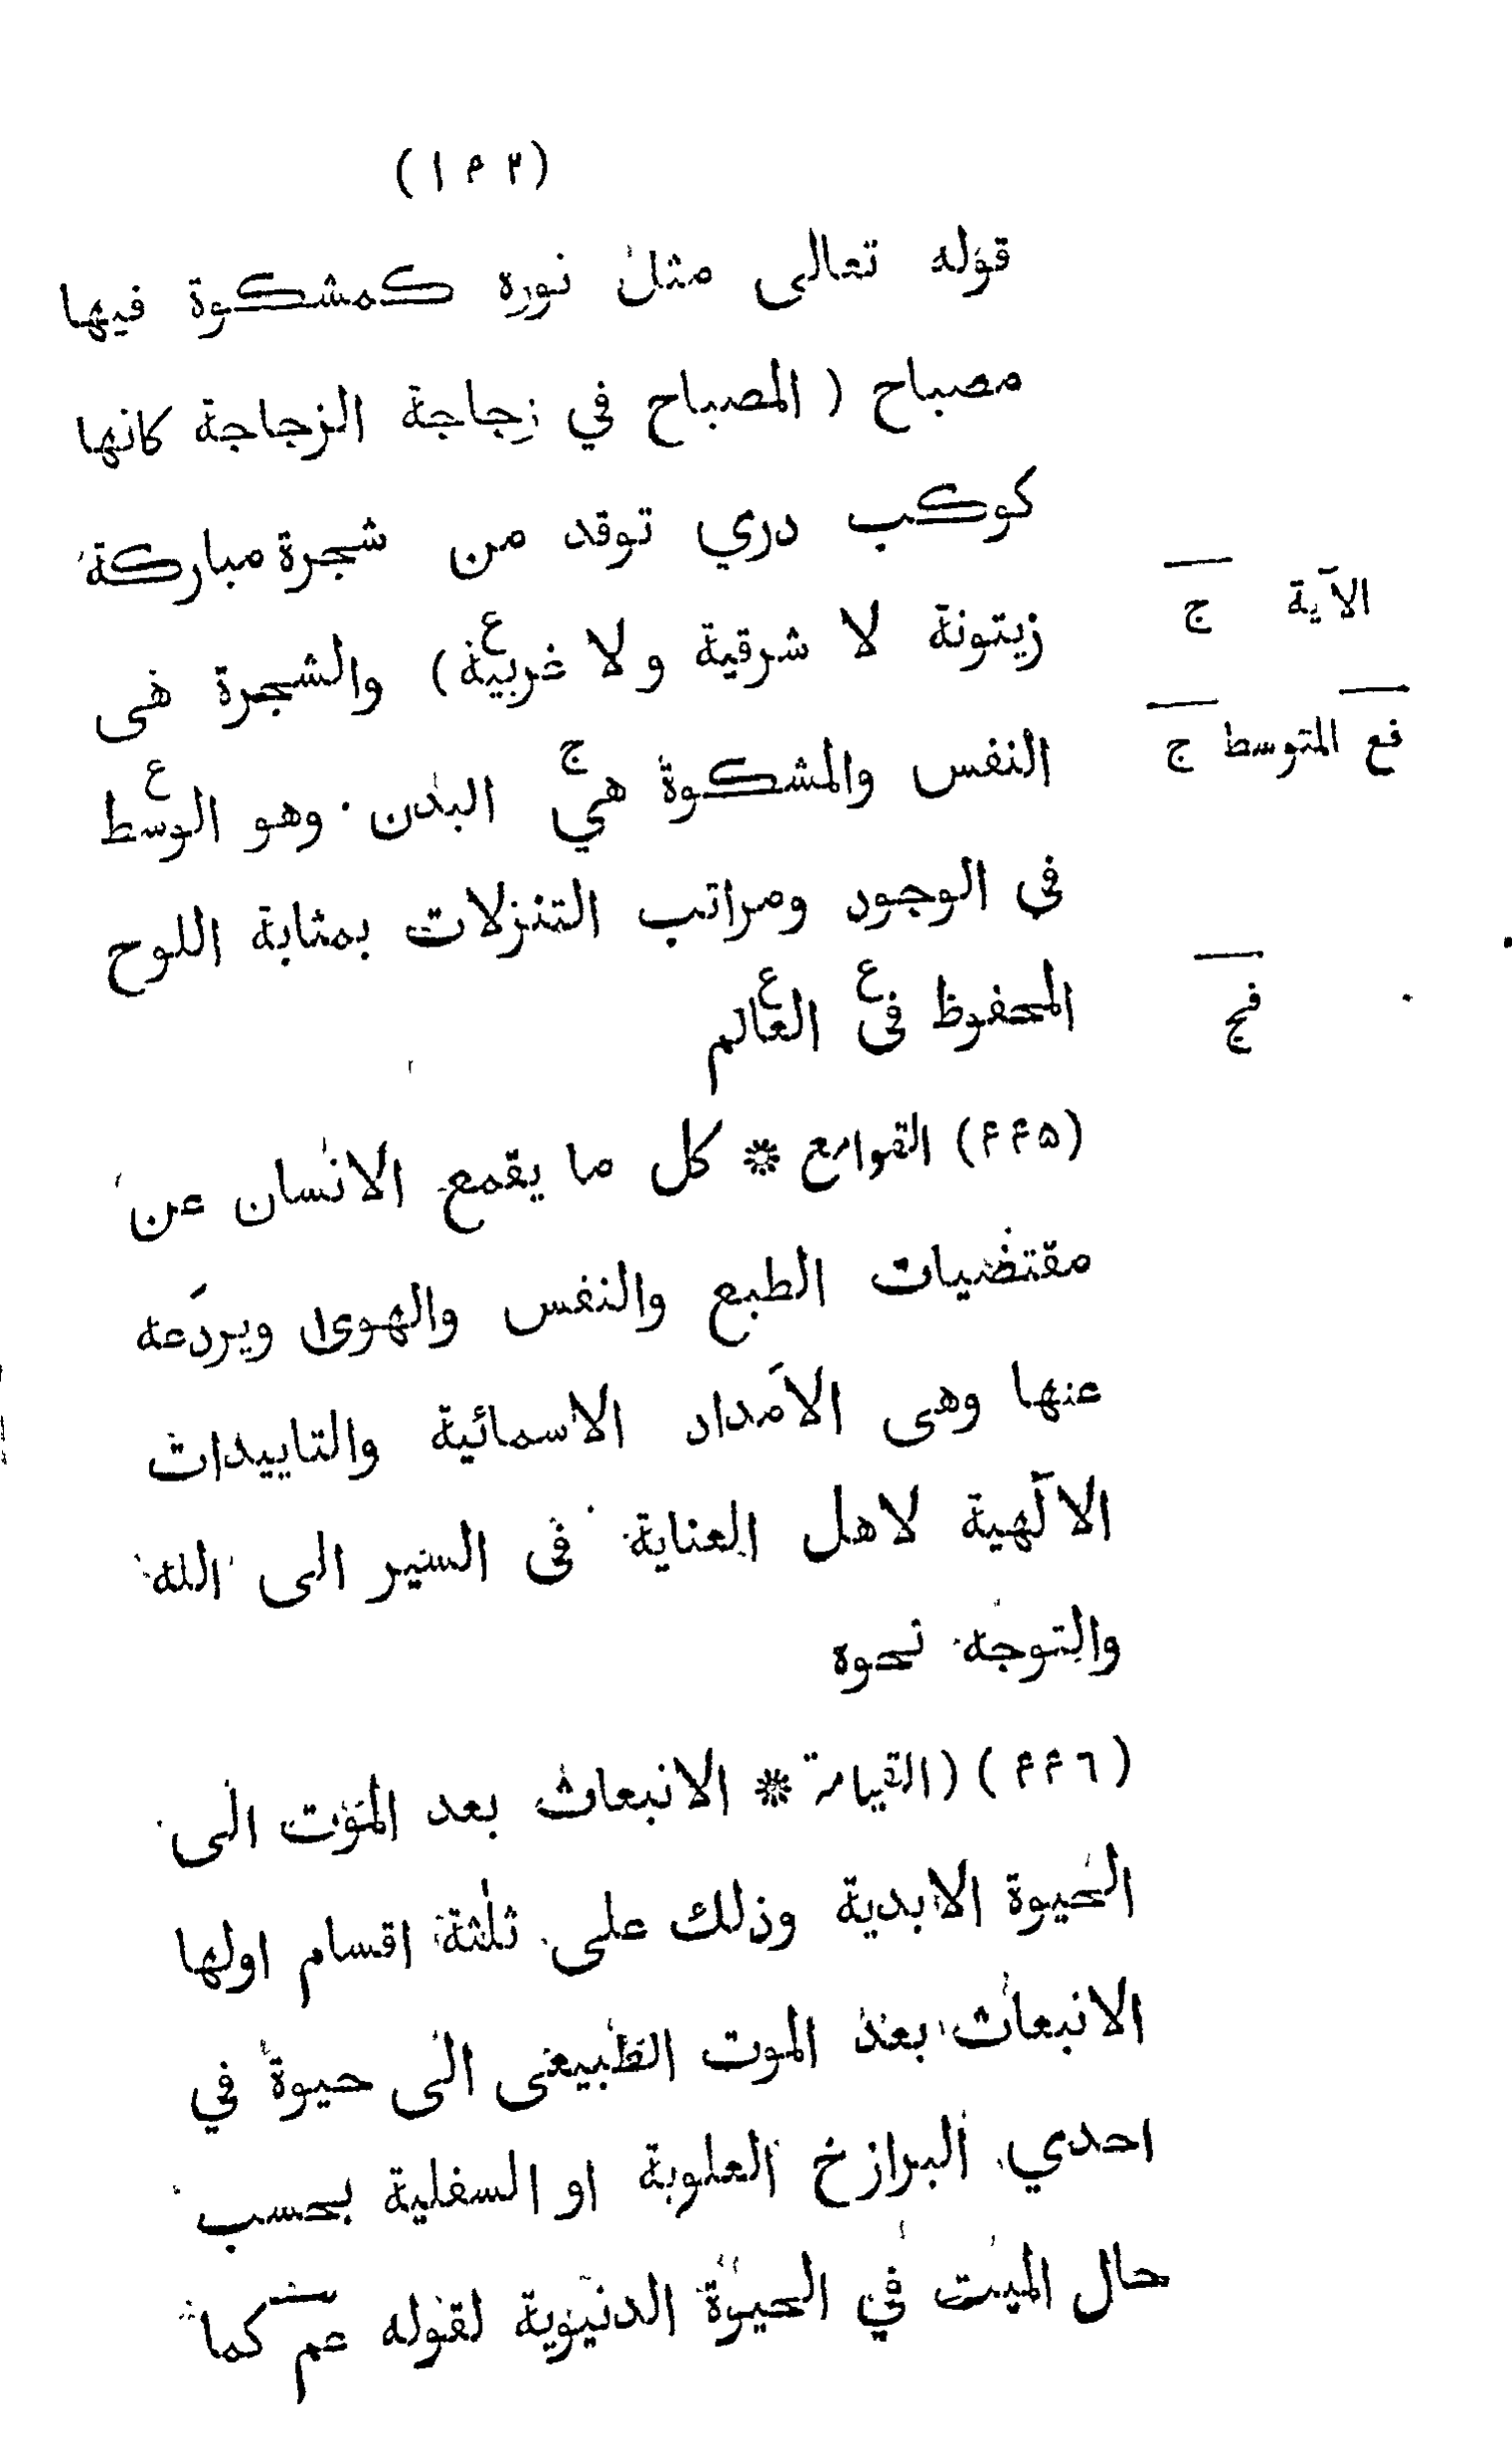 (۱۴۲)
قوله تعالى مثل نوره كمشكوة فيها
مصباح ( المصباح في زجاجة الزجاجة كانها
كوكب دري توقد من شجرة مباركة
زيتونة لا شرقية ولا غربية ع) والشجرة هى
الآية ج
النفس والمشكوة هي ج البدن . وهو الوسط ع
فع المتوسط ج
فى الوجود ومراتب التنزلات بمثابة اللوح
المحفوظ فى ع العالم ع
فج
(۴۴۵) القوامع * كل ما يقمع الانسان عن
مقتضيات الطبع والنفس والهوى ويردعه
عنها وهى الامداد الاسمائية والتاييدات
الالهية لاهل العناية فى السير الى الله
والتوجه نحوه
(۴۴٦) (القيامة * الانبعاث بعد الموت الى
الحيوة الابدية وذلك على ثلثة اقسام اولها
الانبعاث بعد الموت الطبيعى الى حيوة في
احدي البرازخ العلوبة او السفلية بحسب
حال الميت في الحيوة الدنيوية لقوله عم كما